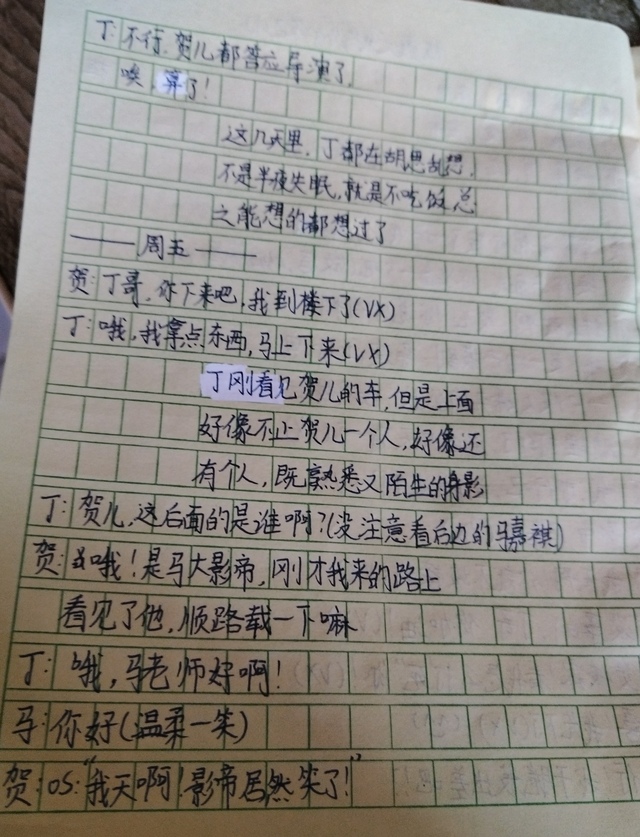 丁:不行,贺儿都答应导演了,
唉,算了!
这几天里,丁都在胡思乱想,
不是半夜失眠,就是不吃饭,总
之能想的都想过了
——周五——
贺:丁哥,你下来吧,我到楼下了(VX)
丁:哦,我拿点东西,马上下来(VX)
丁刚看见贺儿的车,但是上面
好像不止贺儿一个人,好像还
有个人,既熟悉又陌生的身影
丁:贺儿,这后面的是谁啊?(没注意看后边的马嘉祺)
贺:哦!是马大影帝,刚才我来的路上
看见了他,顺路载一下嘛
丁:哦,马老师好啊!
马:你好(温柔一笑)
贺:OS:“我天啊!影帝居然笑了!”